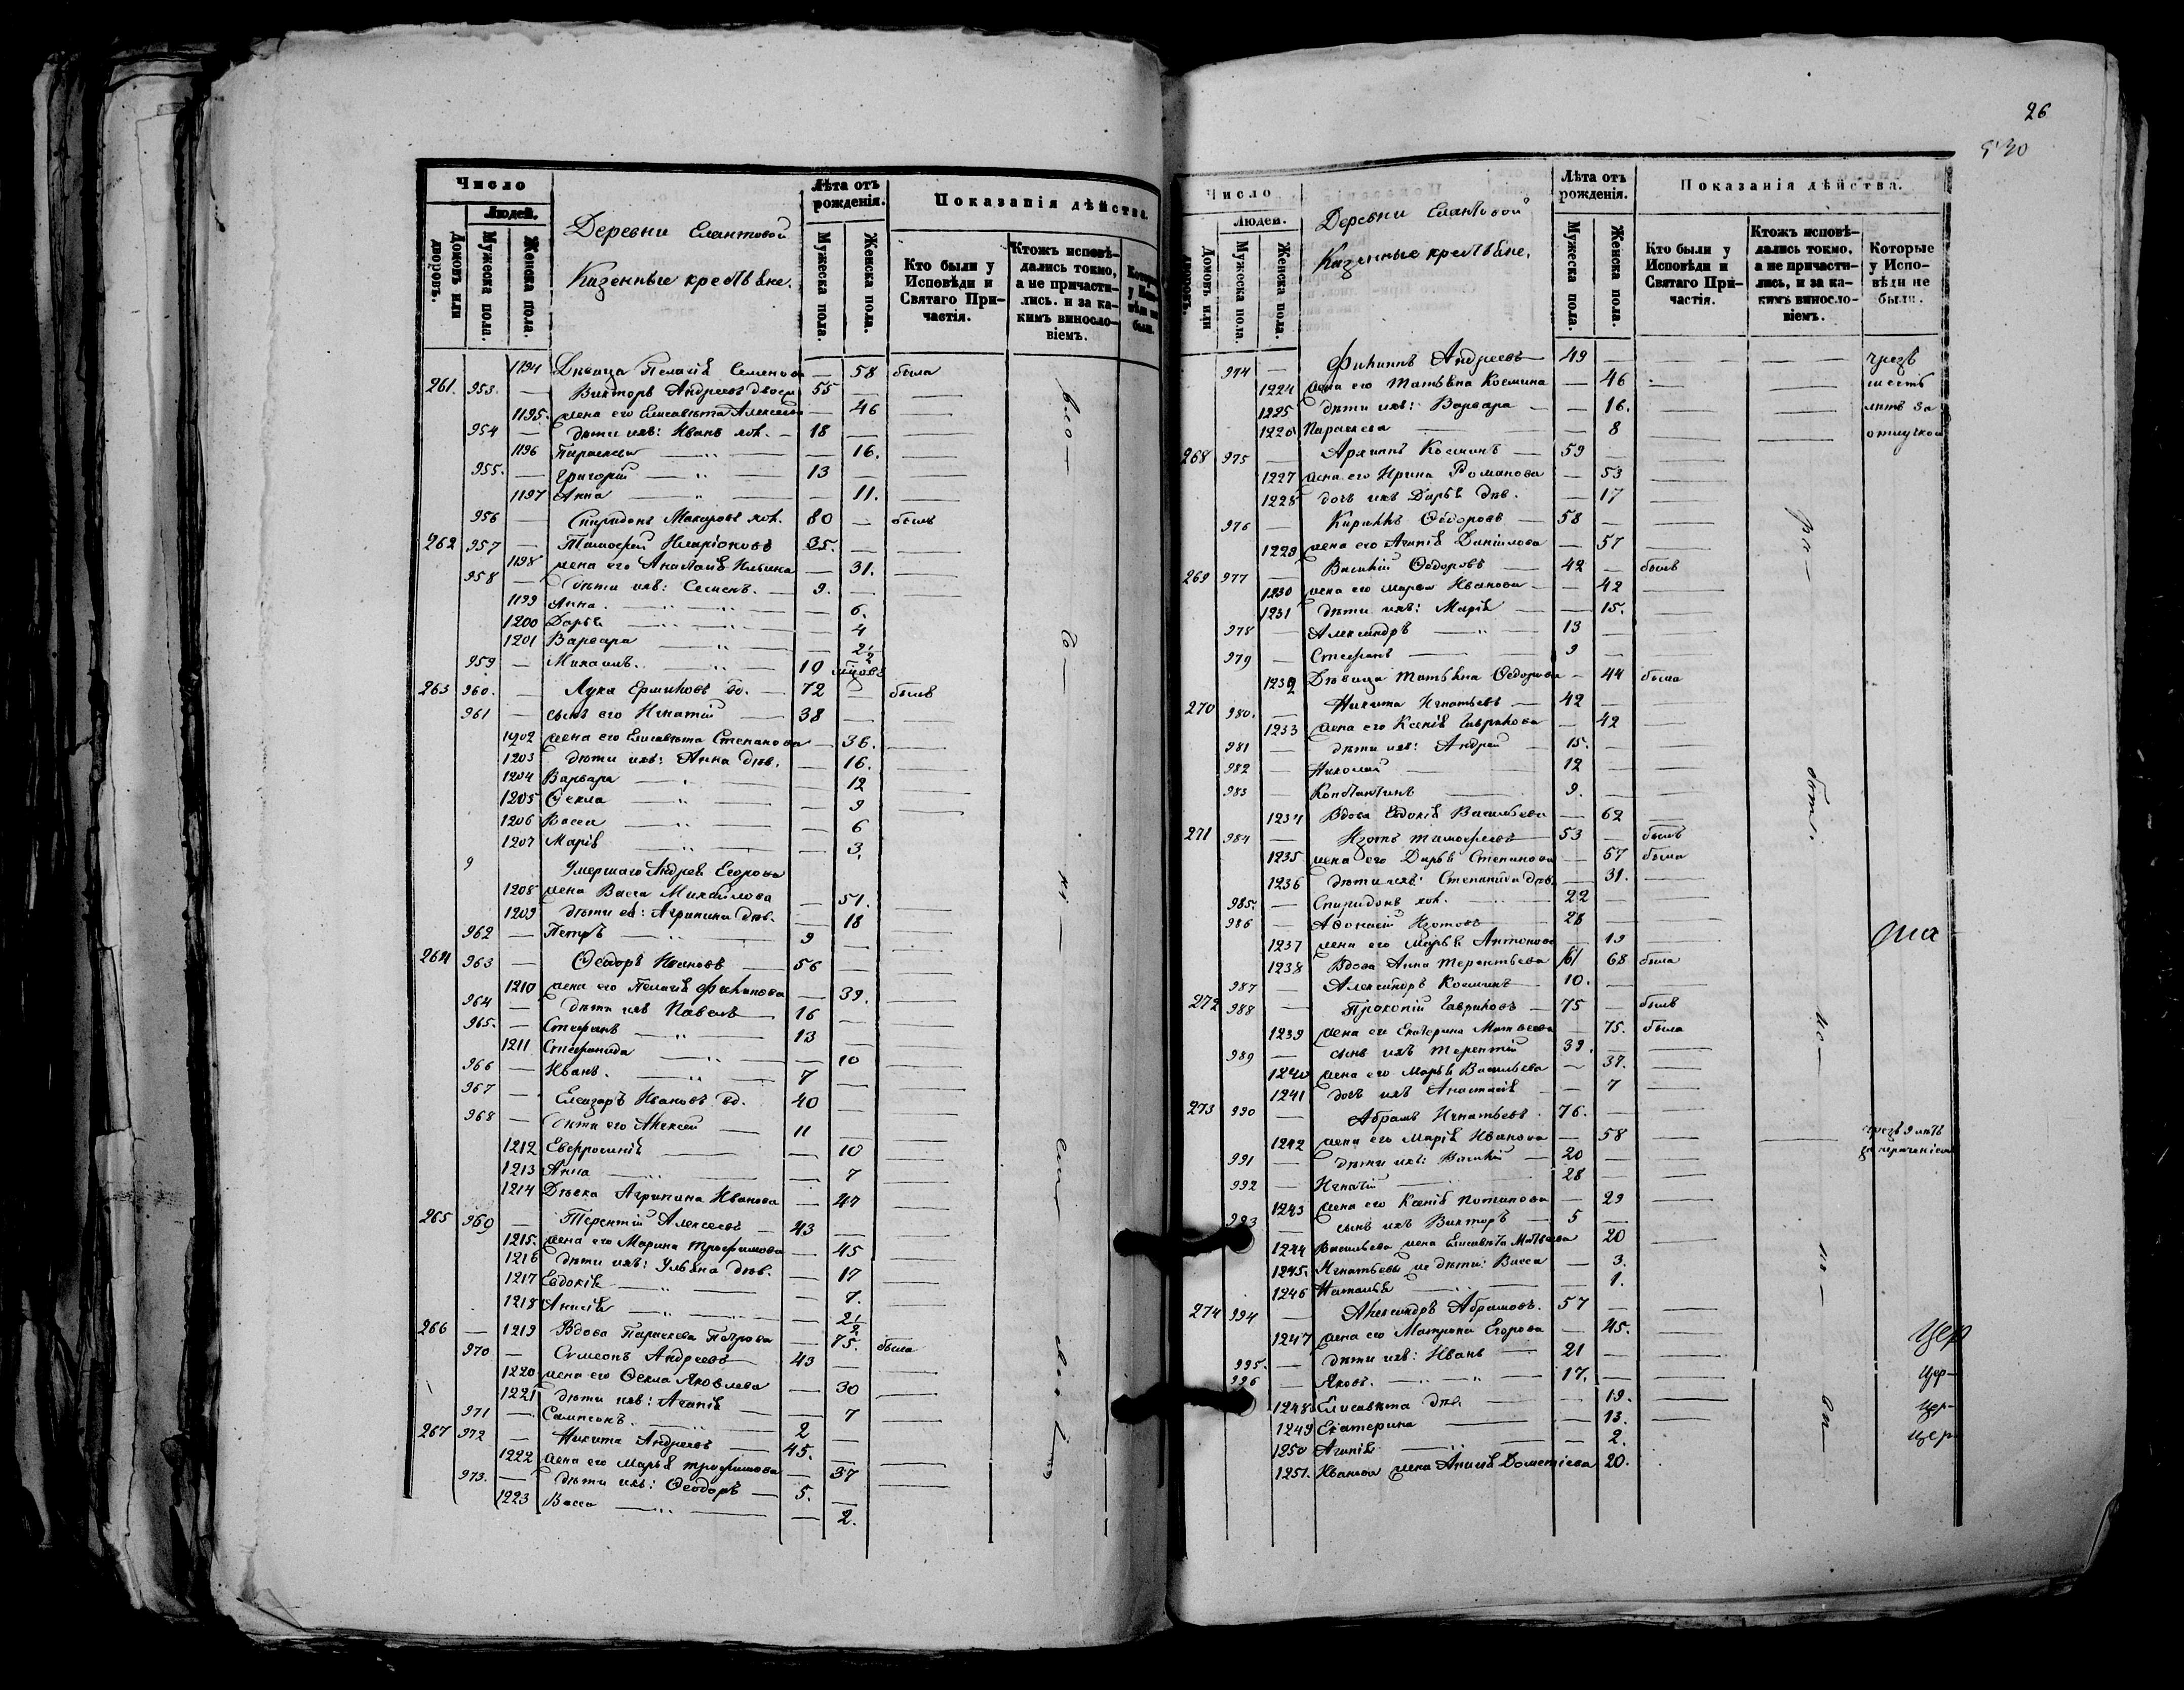 Число
Людей.
Домовъ или дворовъ.
Мужеска пола.
Женска пола.
Деревни Елантовой
Казенные крестьяне.
Лѣта отъ рожденія.
Мужеска пола.
Женска пола.
Показанія дѣйства.
Кто были у Исповѣди и Святаго Причастія.
Ктожъ исповѣдались токмо, а не причастились. и за какимъ винословіемъ.
1194 Дѣвица Пелагія Семенова — 58 была
261. 953. — Викторъ Андреевъ 55 —
1195. жена его Елисавета Алексеева — 46
954 — дѣти ихъ: Иванъ хол. — 18 —
1196 Параскева — 16.
955. — Григорій 13
1197 Анна — 11.
956 — Спиридонъ Макаровъ хол. 80 — былъ
262 957 — Тимофей Иларіоновъ 35. —
1198 жена его Анастасія Ильина — 31.
958 — дѣти ихъ: Семенъ. — 9. —
1199 Анна. — 6.
1200 Дарья — 4
1201 Варвара — 2 1/2
959 — Михаилъ. — 19
263 960. — Лука Ермиловъ вд. — 72 — былъ
961 — сынъ его Игнатій 38 —
1202 жена его Елисавета Степанова — 36.
1203 дѣти ихъ: Анна дѣв. — 16.
1204 Варвара — 12
1205 Ѳекла — 9
1206 Васса — 6
1207 Марія — 3.
9 Умершаго Андрея Егорова
1208 жена Васса Михайлова — 51.
1209 дѣти ея: Агрипина дѣв. — 18
962 — Петръ 9 —
264 963 — Ѳеодоръ Ивановъ 56 —
1210 жена его Пелагія Филипова — 39.
964 — дѣти ихъ Павелъ 16 —
965. — Стефанъ 13 —
1211 Стефанида — 10
966 — Иванъ. 7 —
967 — Елеазаръ Ивановъ вд. 40 —
968 — дѣти его Алексей 11 —
1212 Евфросинія — 10
1213 Анна — 7
1214 Дѣвка Агрипина Иванова — 47
265 969 — Терентій Алексеевъ — 43 —
1215. жена его Марина Трофимова — 45
1216 дѣти ихъ: Ульяна дѣв. — 17
1217 Евдокія — 7.
1218 Анисія — 2 1/2
266 — 1219 Вдова Параскева Петрова — 75. была
970 — Симеонъ Андреевъ 43 —
1220 жена его Ѳекла Яковлева — 30
1221 дѣти ихъ: Агапія — 7
971 — Сампсонъ. 2 —
267 972 — Никита Андреевъ 45. —
1222 жена его Марья Трофимова — 37
973. — дѣти ихъ: Ѳеодоръ — 5. —
1223 Васса — 2.
26
530
Число
Людей.
Домовъ или дворовъ.
Мужеска пола.
Женска пола.
Деревни Елантовой
Казенные крестьяне.
Лѣта отъ рожденія.
Мужеска пола.
Женска пола.
Показанія дѣйства.
Кто были у Исповѣди и Святаго Причастія.
Ктожъ исповѣдались токмо, а не причастились, и за какимъ винословіемъ.
Которые у Исповѣди не были.
974 — Филиппъ Андреевъ 49 — чрезъ
1224 жена его Татьяна Космина — 46 шесть
1225 дѣти ихъ: Варвара — 16. лѣтъ за
1226 Параскева — 8 отлучкой
268 975 — Архипъ Косминъ 59 —
1227 жена его Ирина Романова — 53
1228 дочь ихъ Дарья дѣв. — 17
976 — Кирилъ Ѳедоровъ 58 —
1229 жена его Агапія Даніилова — 57
269 977 — Василій Ѳедоровъ 42 — былъ
1230 жена его Марѳа Иванова — 42
1231 дѣти ихъ: Марія — 15.
978 — Александръ 13 —
979 — Стефанъ 9 —
1232 Дѣвица Татьяна Ѳедорова — 44 была
270 980. — Никита Игнатьевъ 42 —
1233 жена его Ксенія Гаврилова — 42
981 — дѣти ихъ: Андрей 15. —
982 — Николай 12 —
983 — Константинъ 9. —
1234 Вдова Евдокія Васильева — 62
271 984 — Изотъ Тимофеевъ 53 — былъ
1235 жена его Дарья Степанова — 57 была
1236 дѣти ихъ: Степанида дѣв. — 31.
985. — Спиридонъ хол. 22 —
986 — Афонасій Изотовъ 28 —
1237 жена его Марья Антонова — 19
1238 Вдова Анна Терентьева 61 68 была
987 — Александръ Косминъ 10. —
272 988 — Прокопій Гавриловъ 75 — былъ
1239 жена его Екатерина Матвеева — 75. была
989 — сынъ ихъ Терентій 39. —
1240 жена его Марья Васильева — 37.
1241 дочь ихъ Анастасія — 7
273 990 — Абрамъ Игнатьевъ. 76. —
1242 жена его Марія Иванова — 58 чрезъ 9 лѣтъ
991 — дѣти ихъ: Василій 20 —
992 — Игнатій 28 —
1243 жена его Ксенія Потапова — 29
993 — сынъ ихъ Викторъ 5 —
1244 Васильева жена Елисавета Матвеева 20
1245. Игнатьевы же дѣти: Васса — 3.
1246 Наталія — 1.
274 994 — Александръ Абрамовъ. 57 —
1247 жена его Матрона Егорова — 45. Цер
995. — дѣти ихъ: Иванъ 21 —
996 — Яковъ. 17. — Цер—
1248 Елисавета дѣв. — 19. Цер—
1249 Екатерина — 13. Цер
1250 Агапія — 2.
1251. Иванова жена Анисія Дометіева 20.